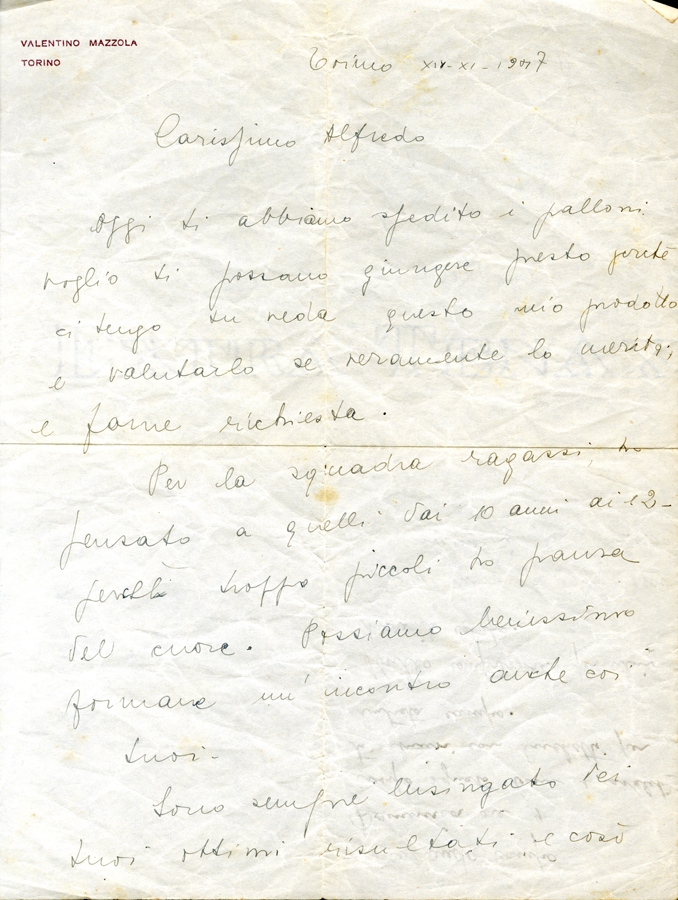 VALENTINO MAZZOLA
TORINO
Torino XIV-XI-1947
Carissimo Alfredo
Oggi ti abbiamo spedito i palloni
voglio ti possano giungere presto perchè
ci tengo tu veda questo mio prodotto
e valutarlo se veramente lo merita;
e farne richiesta.
Per la squadra ragassi, ho
pensato a quelli dai 10 anni ai 12-
perchè troppo piccoli ho paura
del cuore. Possiamo benissimo
formare un'incontro anche coi
tuoi-
Sono sempre lusingato dei
tuoi ottimi risultati e così